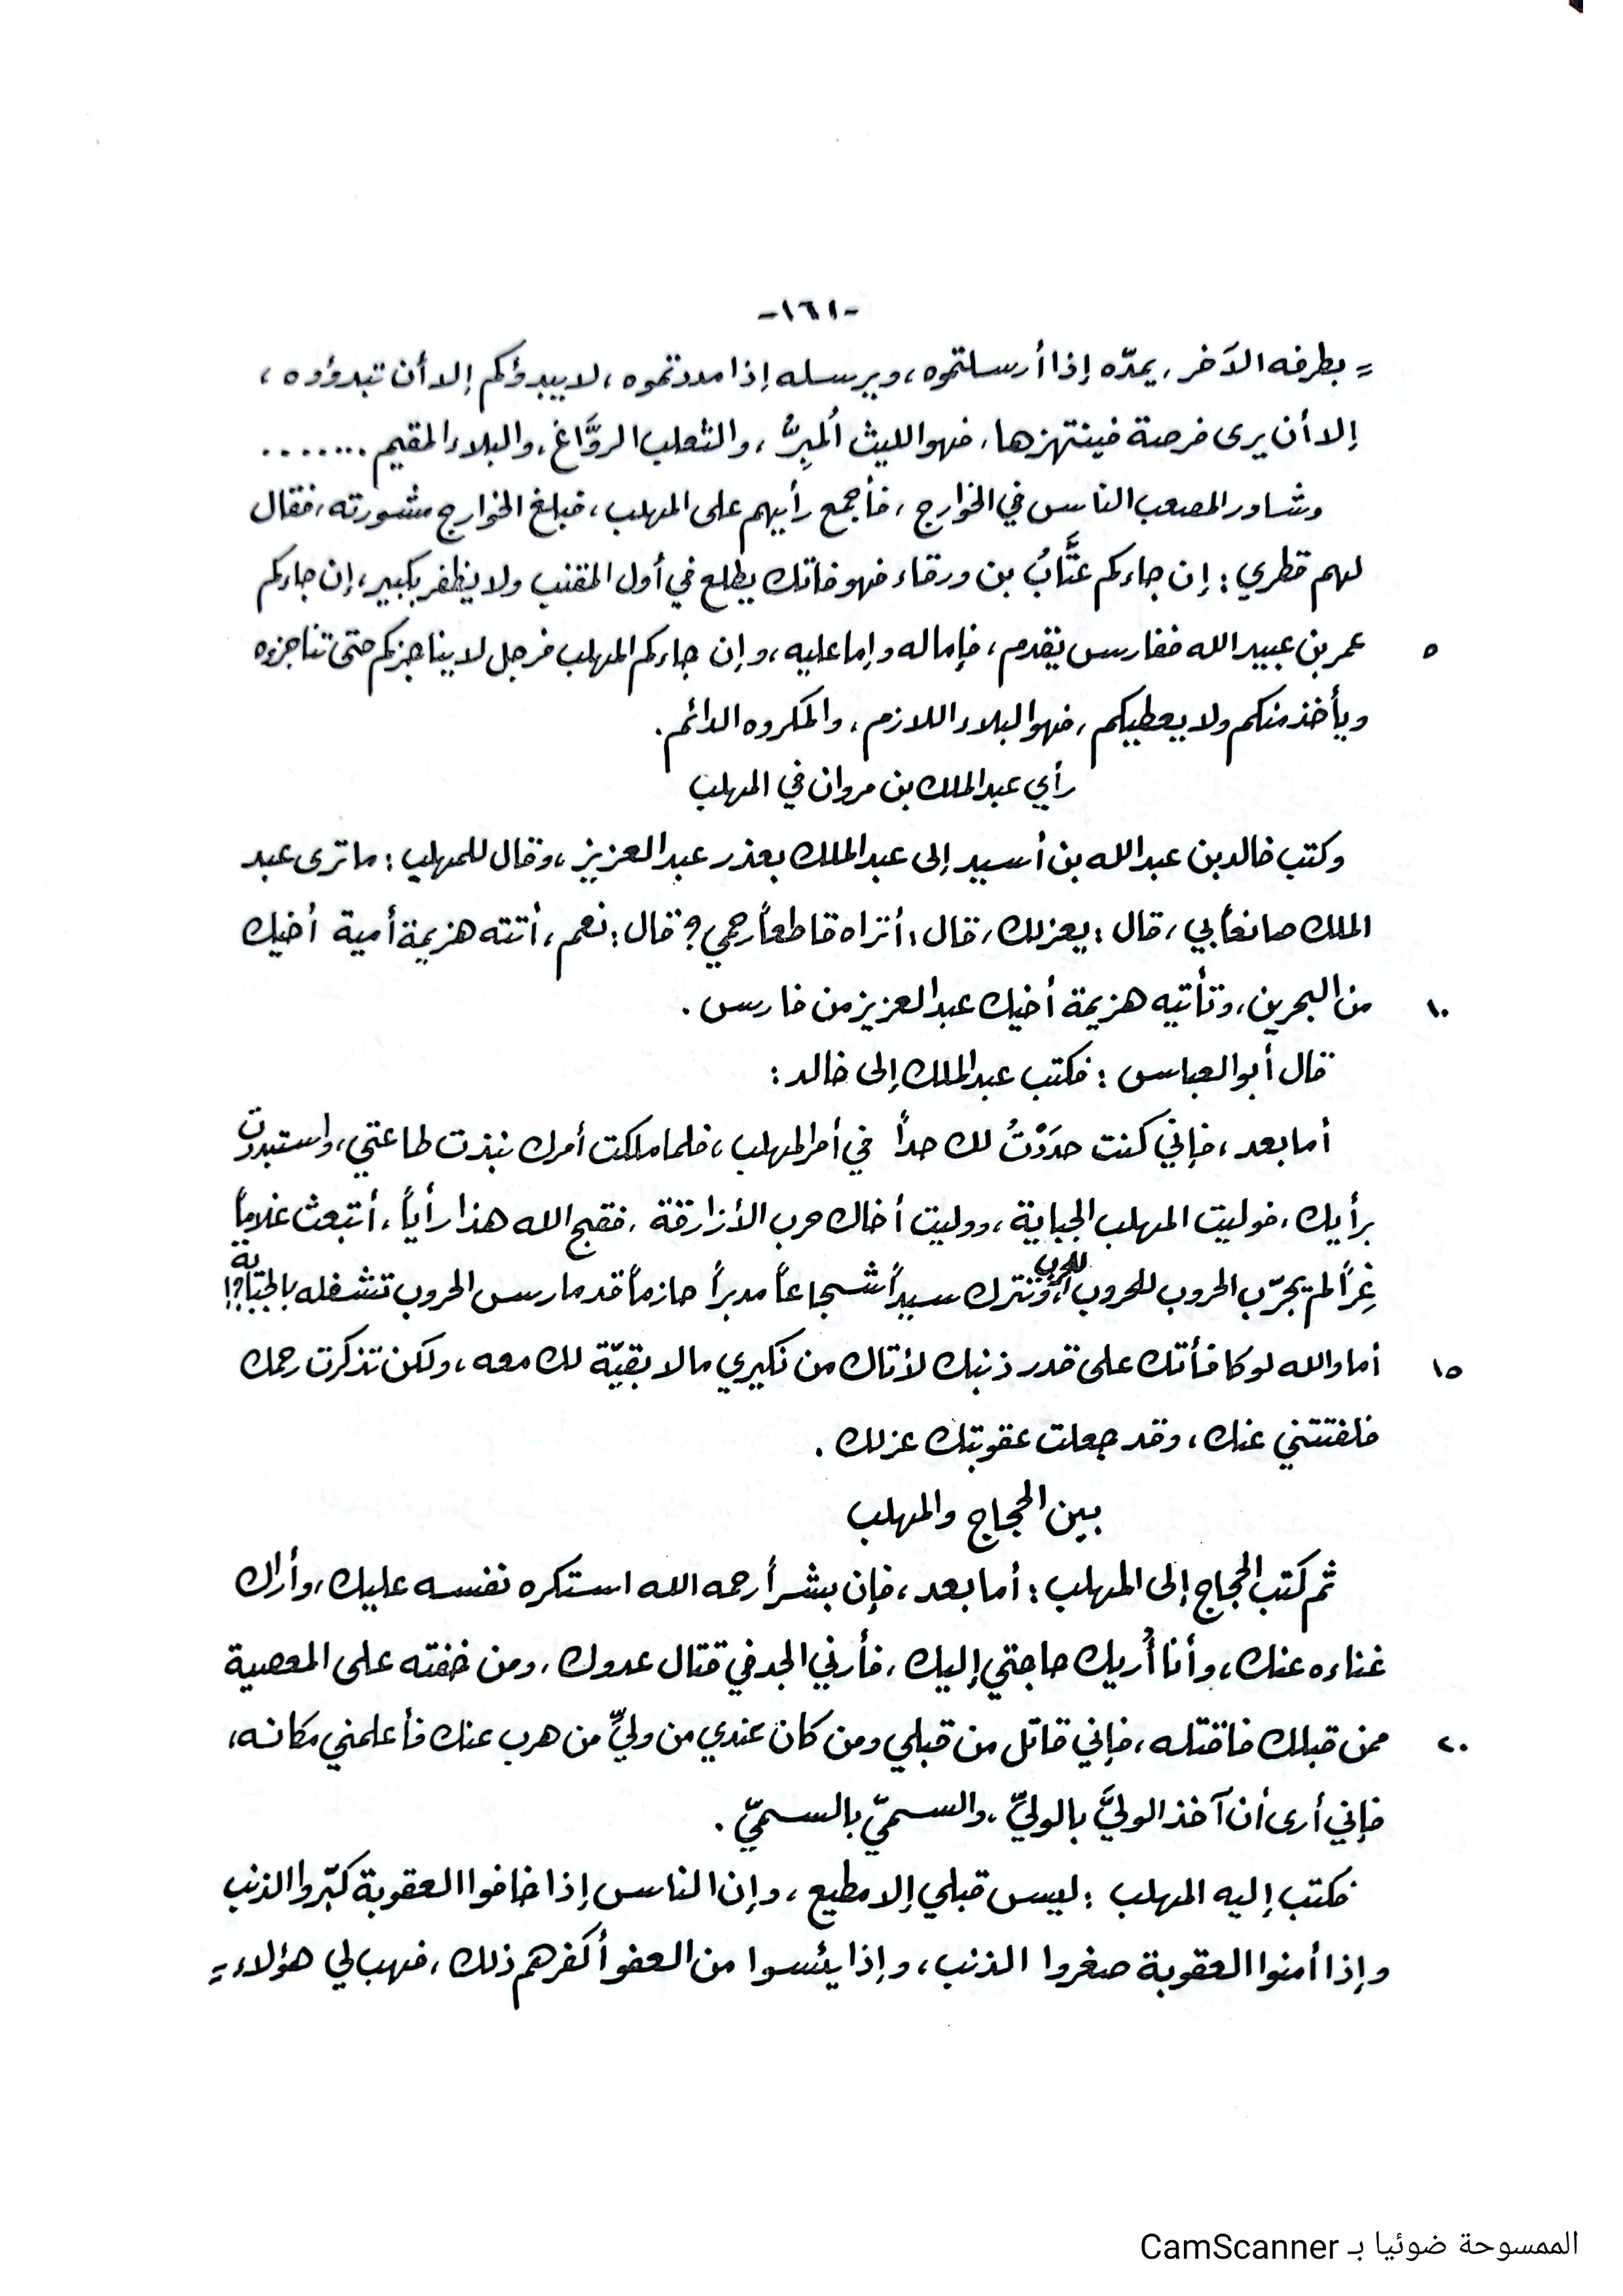 -١٦١-
= بطرفه الآخر، يمدّه إذا أرسلتموه، ويرسله إذا مددتموه، لا يبدؤكم إلا أن تبدؤوه،
إلا أن يرى فرصة فينتهزها، فهو الليث المُبِرُّ، والثعلب الروَّاغ، والبلاء المقيم .......
وشاور المصعب الناس في الخوارج، فأجمع رأيهم على المهلب، فبلغ الخوارج مشورته، فقال
لهم قطري: إن جاءكم عتَّابُ بن ورقاء فهو فاتك يطلع في أول المقنب ولا يظفر بكبير، إن جاءكم
٥ عمر بن عبيد الله ففارس يقدم، فإما له وإما عليه، وإن جاءكم المهلب فرجل لا يناجزكم حتى تناجزوه
ويأخذ منكم ولا يعطيكم، فهو البلاء اللازم، والمكروه الدائم.
رأي عبد الملك بن مروان في المهلب
وكتب خالد بن عبد الله بن أسيد إلى عبد الملك بعذر عبد العزيز، وقال للمهلب: ما ترى عبد
الملك صانعاً بي، قال: يعزلك، قال: أتراه قاطعاً رحمي؟ قال: نعم، أتته هزيمة أمية أخيك
١٠ من البحرين، وتأتيه هزيمة أخيك عبد العزيز من فارس.
قال أبو العباس: فكتب عبد الملك إلى خالد:
أما بعد، فإني كنت حدَدْتُ لك حداً في أمر المهلب، فلما ملكت أمرك نبذت طاعتي، واستبددت
برأيك، فوليت المهلب الجباية، ووليت أخاك حرب الأزارقة، فقبح الله هذا رأياً، أتبعث غلاماً
غِراً لم يجرّب الحروب للحروب، وتترك سيداً شجاعاً مدبراً حازماً قد مارس الحروب تشغله بالجباية؟!
١٥ أما والله لو كافأتك على قدر ذنبك لأتاك من نكيري مالا بقيّة لك معه، ولكن تذكرت رحمك
فلفتتني عنك، وقد جعلت عقوبتك عزلك.
بين الحجاج والمهلب
ثم كتب الحجاج إلى المهلب: أما بعد، فإن بشراً رحمه الله استكره نفسه عليك، وأراك
غناءه عنك، وأنا أُريك حاجتي إليك، فأرني الجد في قتال عدوك، ومن خفته على المعصية
٢٠ ممن قبلك فاقتله، فإني قاتل من قبلي ومن كان عندي من وليِّ من هرب عنك فأعلمني مكانه،
فإني أرى أن آخذ الوليَّ بالوليِّ، والسميّ بالسميّ.
فكتب إليه المهلب: ليس قبلي إلا مطيع، وإن الناس إذا خافوا العقوبة كبّروا الذنب
وإذا أمنوا العقوبة صغروا الذنب، وإذا يئسوا من العفو أكفرهم ذلك، فهب لي هؤلاء =
الممسوحة ضوئيا بـ CamScanner